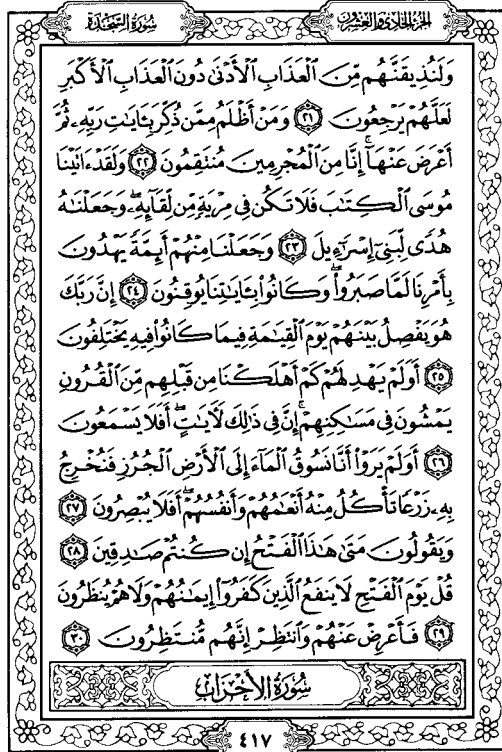 سُورَةُ السَّجْدَةِ
الجزء الحادي والعشرون
وَلَنُذِيقَنَّهُم مِّنَ ٱلْعَذَابِ ٱلْأَدْنَىٰ دُونَ ٱلْعَذَابِ ٱلْأَكْبَرِ
لَعَلَّهُمْ يَرْجِعُونَ ٢١ وَمَنْ أَظْلَمُ مِمَّن ذُكِّرَ بِـَٔايَٰتِ رَبِّهِۦ ثُمَّ
أَعْرَضَ عَنْهَآ ۚ إِنَّا مِنَ ٱلْمُجْرِمِينَ مُنتَقِمُونَ ٢٢ وَلَقَدْ ءَاتَيْنَا
مُوسَى ٱلْكِتَٰبَ فَلَا تَكُن فِى مِرْيَةٍ مِّن لِّقَآئِهِۦ ۖ وَجَعَلْنَٰهُ
هُدًى لِّبَنِىٓ إِسْرَٰٓءِيلَ ٢٣ وَجَعَلْنَا مِنْهُمْ أَئِمَّةً يَهْدُونَ
بِأَمْرِنَا لَمَّا صَبَرُوا۟ ۖ وَكَانُوا۟ بِـَٔايَٰتِنَا يُوقِنُونَ ٢٤ إِنَّ رَبَّكَ
هُوَ يَفْصِلُ بَيْنَهُمْ يَوْمَ ٱلْقِيَٰمَةِ فِيمَا كَانُوا۟ فِيهِ يَخْتَلِفُونَ
٢٥ أَوَلَمْ يَهْدِ لَهُمْ كَمْ أَهْلَكْنَا مِن قَبْلِهِم مِّنَ ٱلْقُرُونِ
يَمْشُونَ فِى مَسَٰكِنِهِمْ ۚ إِنَّ فِى ذَٰلِكَ لَءَايَٰتٍ ۖ أَفَلَا يَسْمَعُونَ
٢٦ أَوَلَمْ يَرَوْا۟ أَنَّا نَسُوقُ ٱلْمَآءَ إِلَى ٱلْأَرْضِ ٱلْجُرُزِ فَنُخْرِجُ
بِهِۦ زَرْعًا تَأْكُلُ مِنْهُ أَنْعَٰمُهُمْ وَأَنفُسُهُمْ ۖ أَفَلَا يُبْصِرُونَ ٢٧
وَيَقُولُونَ مَتَىٰ هَٰذَا ٱلْفَتْحُ إِن كُنتُمْ صَٰدِقِينَ ٢٨
قُلْ يَوْمَ ٱلْفَتْحِ لَا يَنفَعُ ٱلَّذِينَ كَفَرُوٓا۟ إِيمَٰنُهُمْ وَلَا هُمْ يُنظَرُونَ
٢٩ فَأَعْرِضْ عَنْهُمْ وَٱنتَظِرْ إِنَّهُم مُّنتَظِرُونَ ٣٠
سُورَةُ الأَحْزَابِ
٤١٧